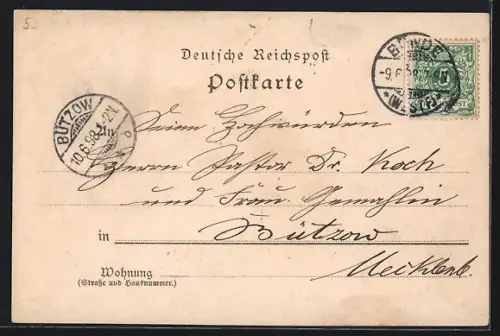 5.
Deutsche Reichspost
Postkarte
BÜNDE
-9.6.98.
*(WESTF.)
BÜTZOW
10.6.98.1-2N
An
Seiner Hochwürden
Herrn Pastor Dr. Koch
und Frau Gemahlin
in Bützow
Wohnung
(Straße und Hausnummer.)
Mecklenb.